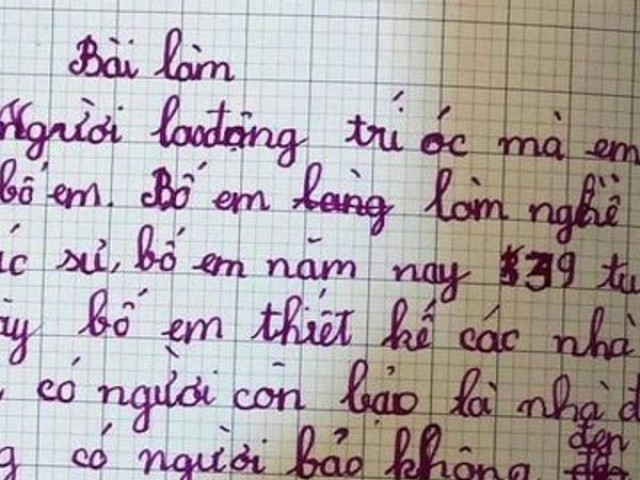 Bài làm
Người laođộng trí óc mà em
bố em. Bố em làng làm nghề
úc sư, bố em năm nay 39 tu
ày bố em thiết kế các nhà
có người còn bảo là nhà đ
g có người bảo không đẹp